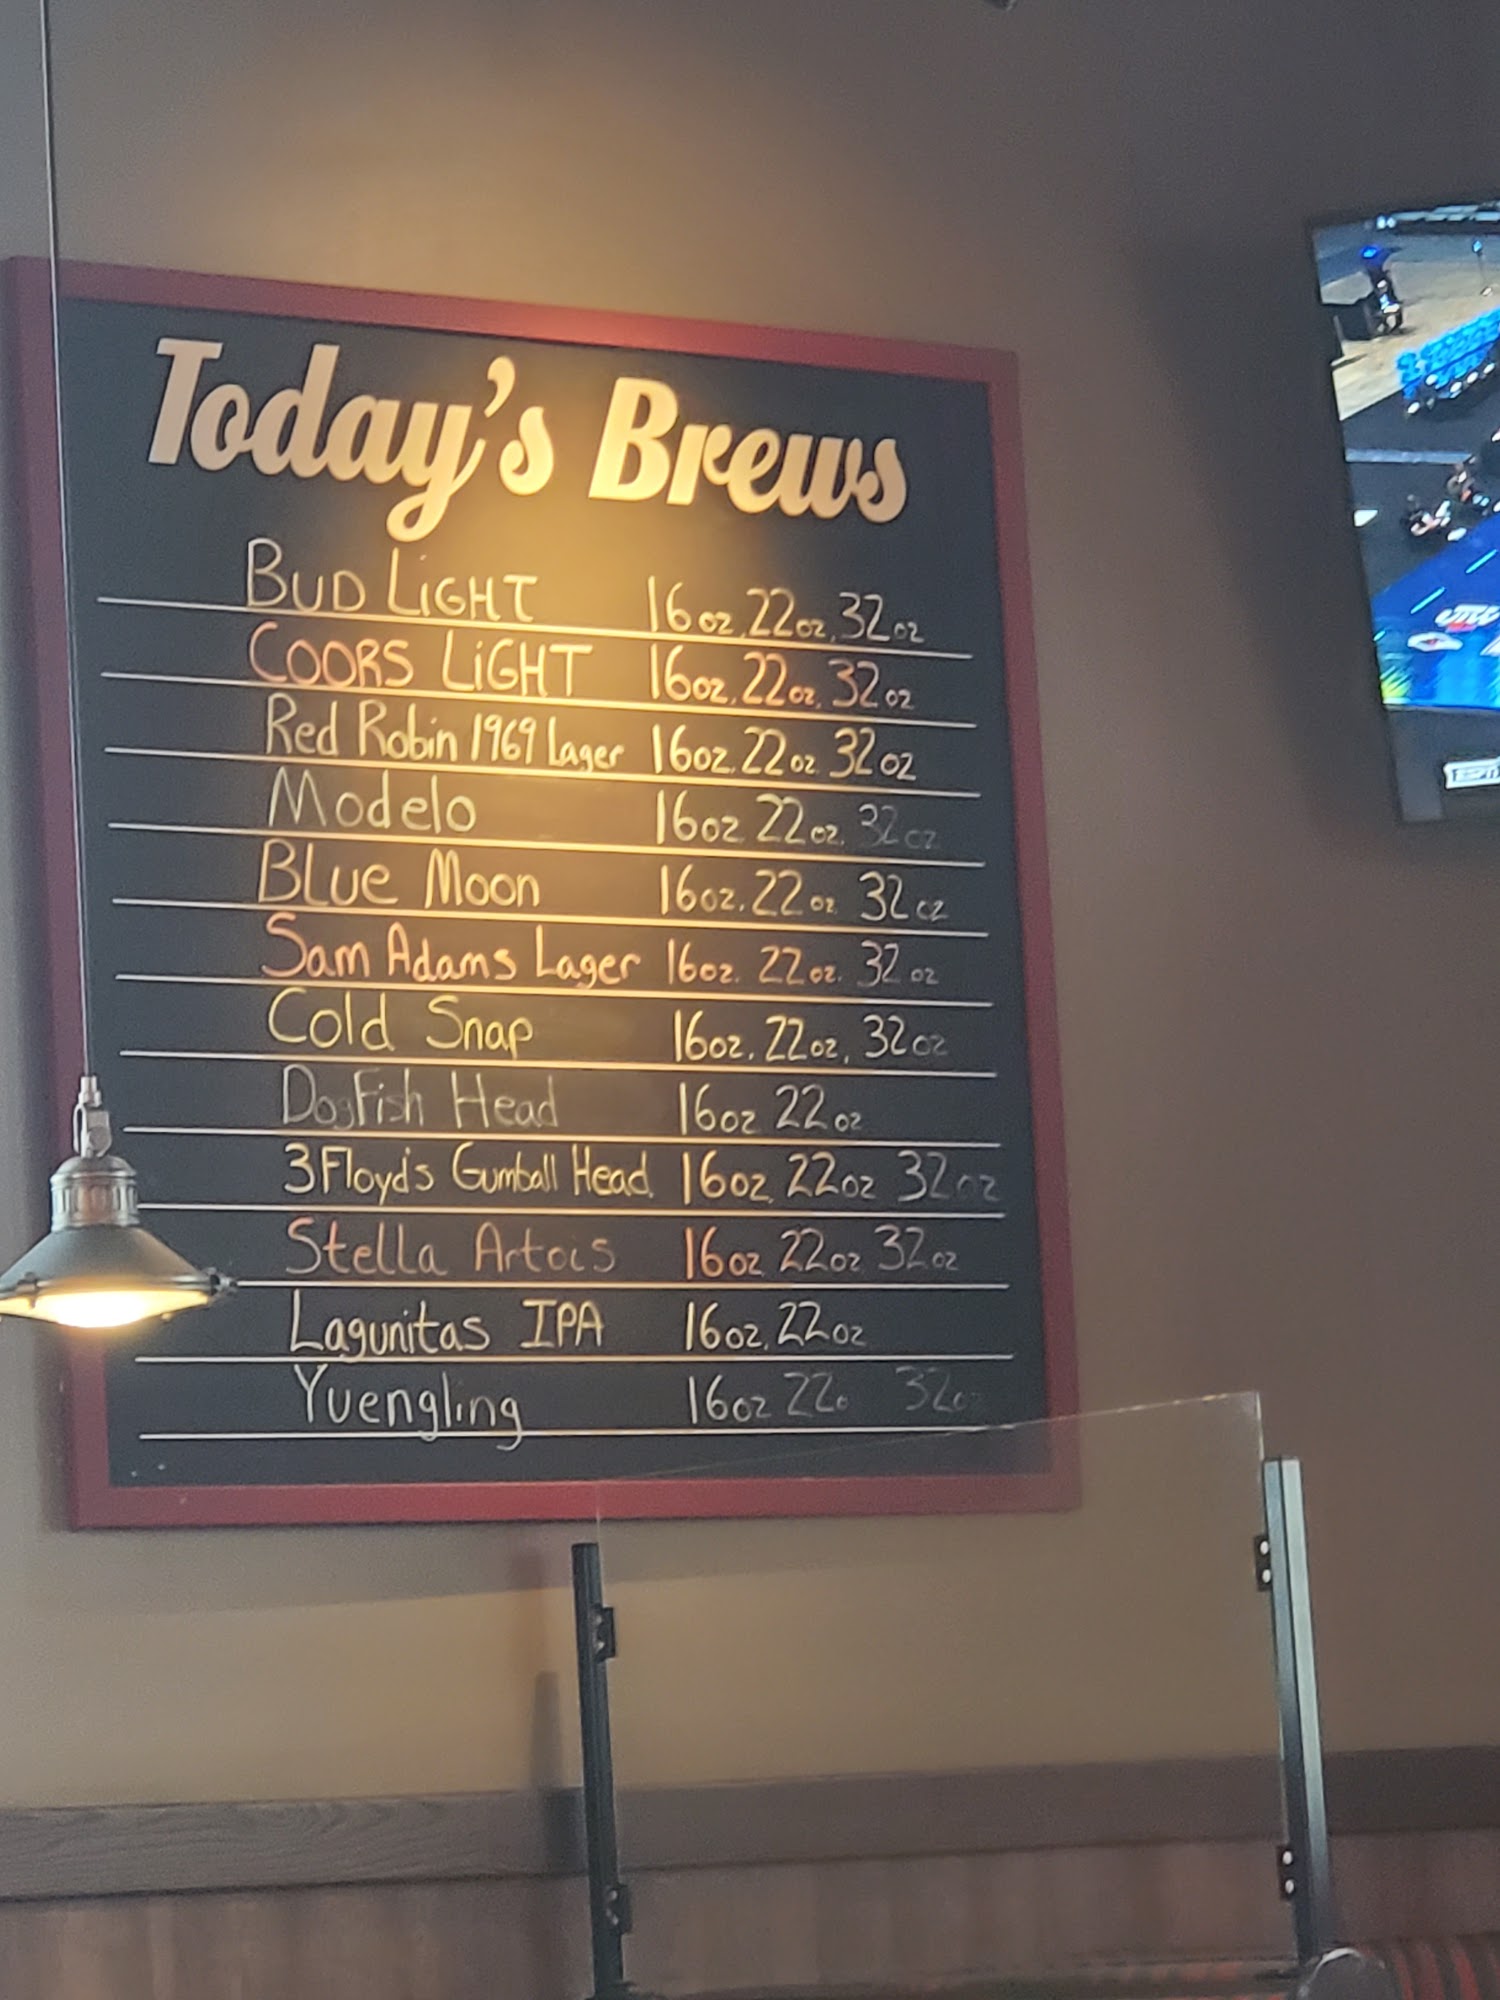 Today's Brews
BUD LiGHT 16oz, 22oz, 32oz
COORS LiGHT 16oz, 22oz, 32oz
Red Robin 1969 Lager 16oz, 22oz 32oz
Modelo 16oz 22oz, 32oz
BLue Moon 16oz, 22oz 32oz
Sam Adams Lager 16oz, 22oz, 32oz
Cold Snap 16oz, 22oz, 32oz
DogFish Head 16oz 22oz
3Floyd's Gumball Head 16oz, 22oz 32oz
Stella Artois 16oz 22oz 32oz
Lagunitas IPA 16oz, 22oz
Yuengling 16oz 22o 32oz
ESPN